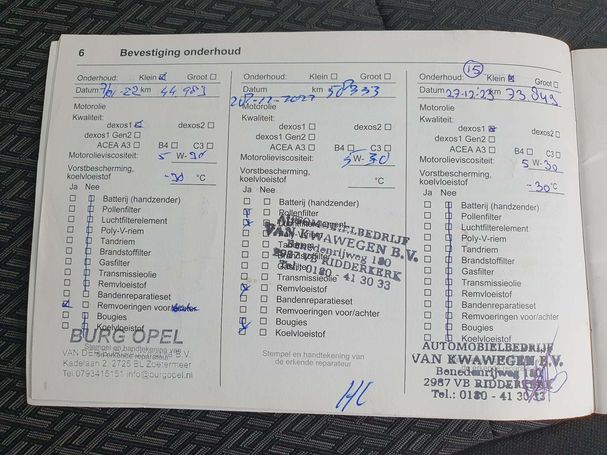 6 Bevestiging onderhoud
Onderhoud: Klein Groot
Datum km 44.983
Motorolie
Kwaliteit:
dexos1 dexos2
dexos1 Gen2
ACEA A3 B4 C3
Motorolieviscositeit: 5 W-30
Vorstbescherming,
koelvloeistof -30 °C
Ja Nee
Batterij (handzender)
Pollenfilter
Luchtfilterelement
Poly-V-riem
Tandriem
Brandstoffilter
Gasfilter
Transmissieolie
Remvloeistof
Bandenreparatieset
Remvoeringen voor/achter
Bougies
Koelvloeistof
BURG OPEL
Stempel en handtekening van
de erkende reparateur
Kadelaan 2, 2725 BL Zoetermeer
Tel.0793415151 info@burgopel.nl
Onderhoud: Klein Groot
Datum km 50333
Motorolie
Kwaliteit:
dexos1 dexos2
dexos1 Gen2
ACEA A3 B4 C3
Motorolieviscositeit: 5 W-30
Vorstbescherming,
koelvloeistof °C
Ja Nee
Batterij (handzender)
Pollenfilter
AUTOMOBIELBEDRIJF
VAN KWAWEGEN B.V.
Benedenrijweg 180
2987 VB RIDDERKERK
Tel.: 0180 - 41 30 33
Transmissieolie
Remvloeistof
Bandenreparatieset
Remvoeringen voor/achter
Bougies
Koelvloeistof
Stempel en handtekening van
de erkende reparateur
15
Onderhoud: Klein Groot
Datum 27-12-23 km 73.849
Motorolie
Kwaliteit:
dexos1 dexos2
dexos1 Gen2
ACEA A3 B4 C3
Motorolieviscositeit: 5 W-30
Vorstbescherming,
koelvloeistof -30 °C
Ja Nee
Batterij (handzender)
Pollenfilter
Luchtfilterelement
Poly-V-riem
Tandriem
Brandstoffilter
Gasfilter
Transmissieolie
Remvloeistof
Bandenreparatieset
Remvoeringen voor/achter
Bougies
Koelvloeistof
AUTOMOBIELBEDRIJF
VAN KWAWEGEN B.V.
Benedenrijweg 180
2987 VB RIDDERKERK
Tel.: 0180 - 41 30 33